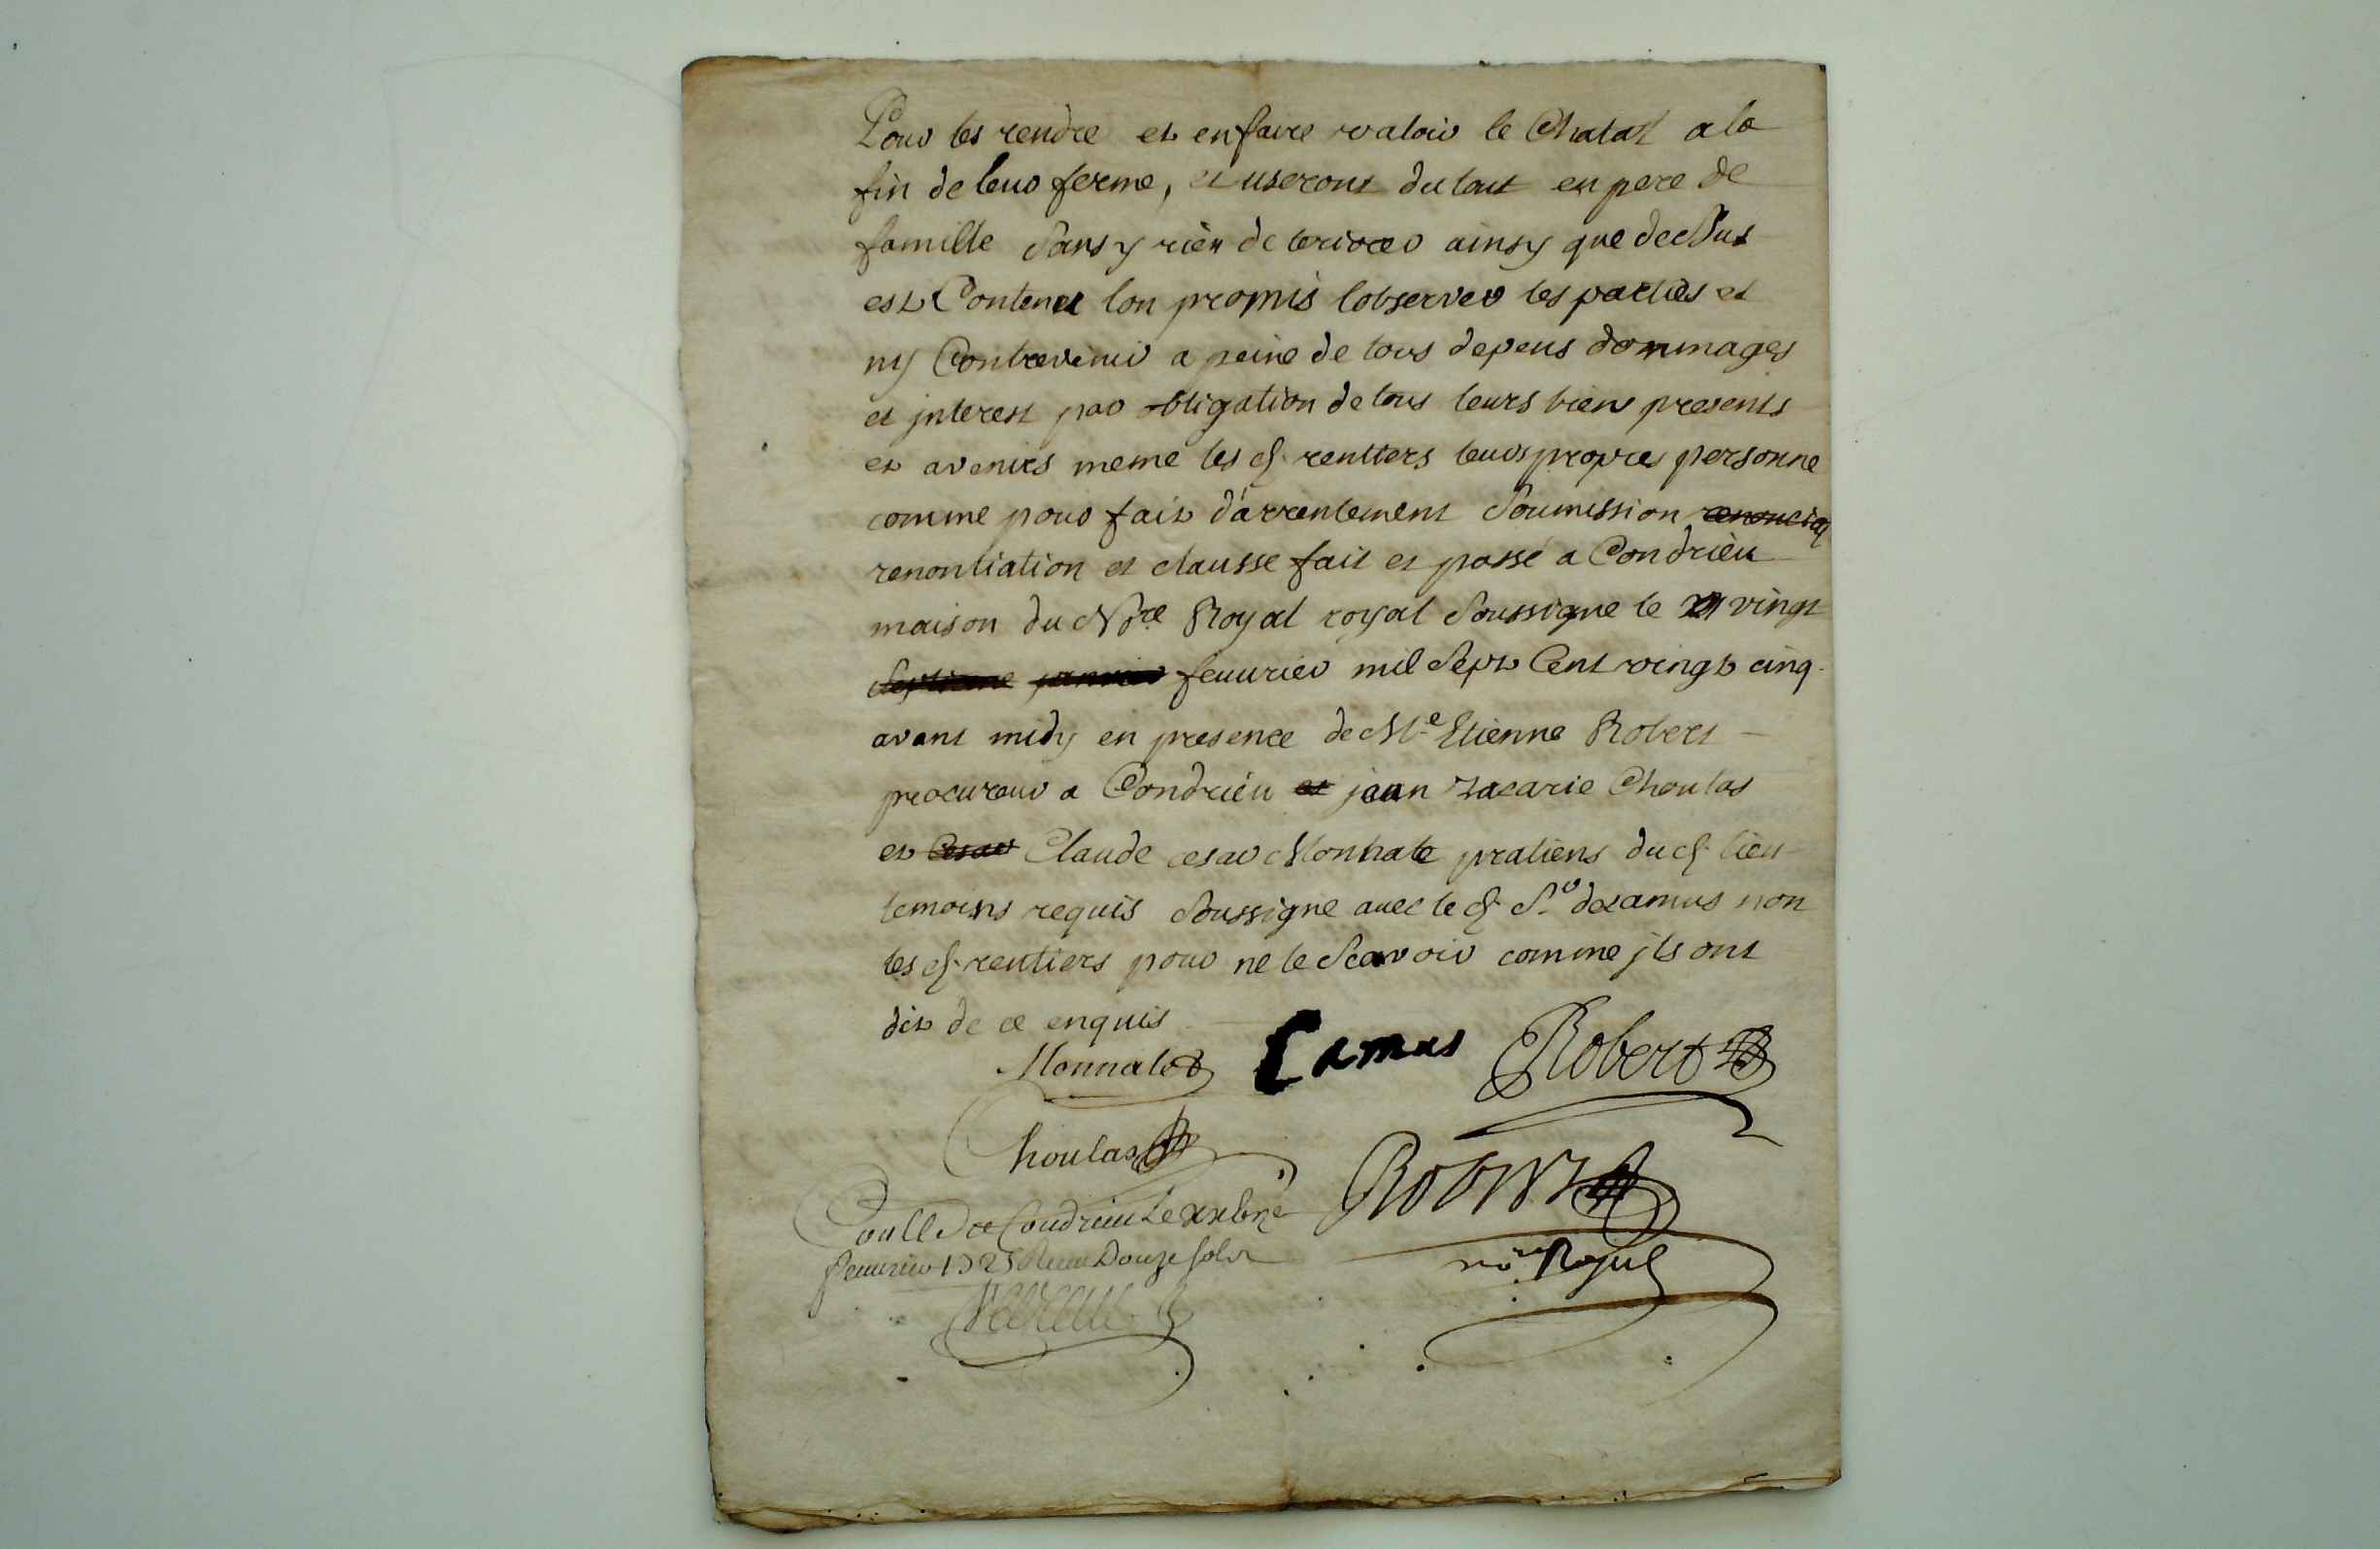 Pour les rendre et en faire valoir le Chatal a la
fin de leur ferme, et useront du tout en pere de
famille Sans y rien deteriorer ainsy que dessus
est Contenu lon promis lobserver les parties et
ny Contrevenir a peine de tous depens dommages
et jnterest par obligation de tous leurs bien presents
et avenirs meme les d. rentiers leurs propres personne
comme pour fait d'arrentement Soumission renoncia
renontiation et clausse fait et passé a Condrieu
maison du No.re Royal royal Soussigne le vingt
Septieme janvier feuurier mil Sept Cent vingt cinq.
avant midy en presence de Me. Etienne Robert
procureur a Condrieu et jean Zacarie Choulas
et Cesar Claude cesar Monnate pratiens dud. lieu
temoins requis Soussigne auec le d. Sr. decamus non
les d. rentiers pour ne le Scavoir comme jls ont
dit de ce enquis
Monnate Camus Robert
Choulas
Robert
Coullé a Condrieu Le
feuurier 1725 Receu Douze sols
no.re Royal